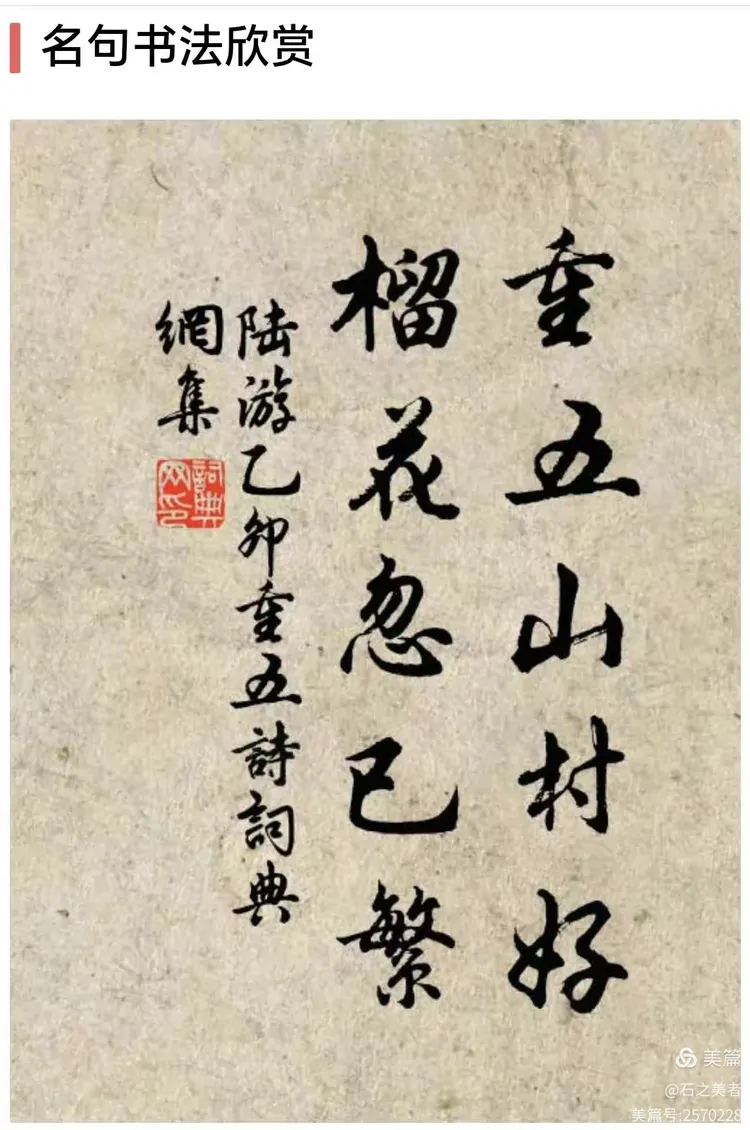 名句书法欣赏
重五山村好
榴花忽已繁
陆游乙卯重五詩詞典
網集
詞典
网印
美篇
@石之美者
美篇号:2570228